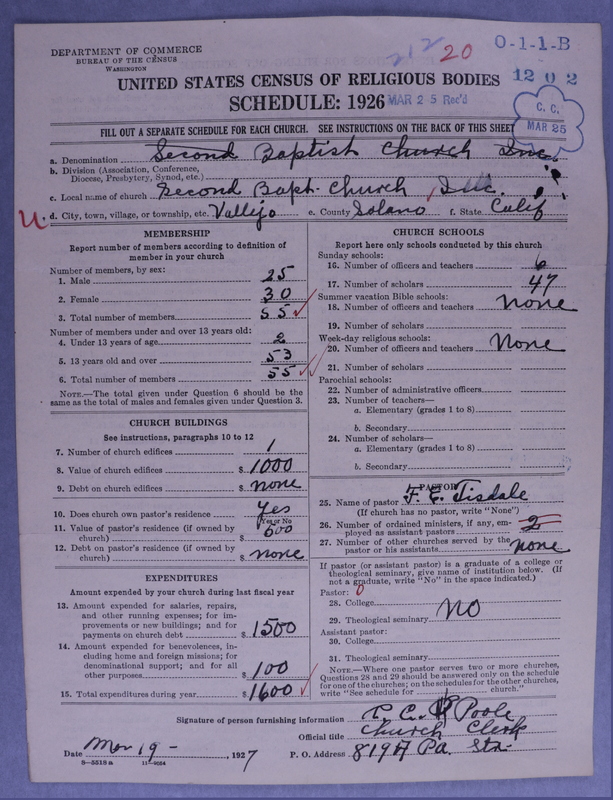 DEPARTMENT OF COMMERCE
BUREAU OF THE CENSUS
WASHINGTON
212 20
0-1-1-B
1202
UNITED STATES CENSUS OF RELIGIOUS BODIES
SCHEDULE: 1926
MAR 25 Rec'd
C. C.
MAR 25
FILL OUT A SEPARATE SCHEDULE FOR EACH CHURCH. SEE INSTRUCTIONS ON THE BACK OF THIS SHEET
a. Denomination Second Baptist Church Inc.
b. Division (Association, Conference,
Diocese, Presbytery, Synod, etc.)
c. Local name of church Second Bapt. Church Inc.
d. City, town, village, or township, etc. Vallejo e. County Solano f. State Calif
MEMBERSHIP
Report number of members according to definition of
member in your church
Number of members, by sex:
1. Male 25
2. Female 30
3. Total number of members 55
Number of members under and over 13 years old:
4. Under 13 years of age 2
5. 13 years old and over 53
6. Total number of members 55
NOTE.—The total given under Question 6 should be
the same as the total of males and females given under Question 3.
CHURCH BUILDINGS
See instructions, paragraphs 10 to 12
7. Number of church edifices 1
8. Value of church edifices $ 1000
9. Debt on church edifices $ none
10. Does church own pastor's residence Yes
(Yes or No)
11. Value of pastor's residence (if owned by
church) $ 500
12. Debt on pastor's residence (if owned by
church) $ none
EXPENDITURES
Amount expended by your church during last fiscal year
13. Amount expended for salaries, repairs,
and other running expenses; for im-
provements or new buildings; and for
payments on church debt $ 1500
14. Amount expended for benevolences, in-
cluding home and foreign missions; for
denominational support; and for all
other purposes $ 100
15. Total expenditures during year $ 1600
CHURCH SCHOOLS
Report here only schools conducted by this church
Sunday schools:
16. Number of officers and teachers 6
17. Number of scholars 47
Summer vacation Bible schools:
18. Number of officers and teachers none
19. Number of scholars
Week-day religious schools:
20. Number of officers and teachers None
21. Number of scholars
Parochial schools:
22. Number of administrative officers
23. Number of teachers—
a. Elementary (grades 1 to 8)
b. Secondary
24. Number of scholars—
a. Elementary (grades 1 to 8)
b. Secondary
PASTOR
25. Name of pastor F. E. Tisdale
(If church has no pastor, write "None")
26. Number of ordained ministers, if any, em-
ployed as assistant pastors 2
27. Number of other churches served by the
pastor or his assistants none
If pastor (or assistant pastor) is a graduate of a college or
theological seminary, give name of institution below. (If
not a graduate, write "No" in the space indicated.)
Pastor: 0
28. College
29. Theological seminary NO
Assistant pastor:
30. College
31. Theological seminary
NOTE.—Where one pastor serves two or more churches,
Questions 28 and 29 should be answered only on the schedule
for one of the churches; on the schedules for the other churches,
write "See schedule for church."
Signature of person furnishing information Poole
Official title Church Clerk
Date Mar 19 - , 1927 P. O. Address 819 Pa. Str.
8-5518 a